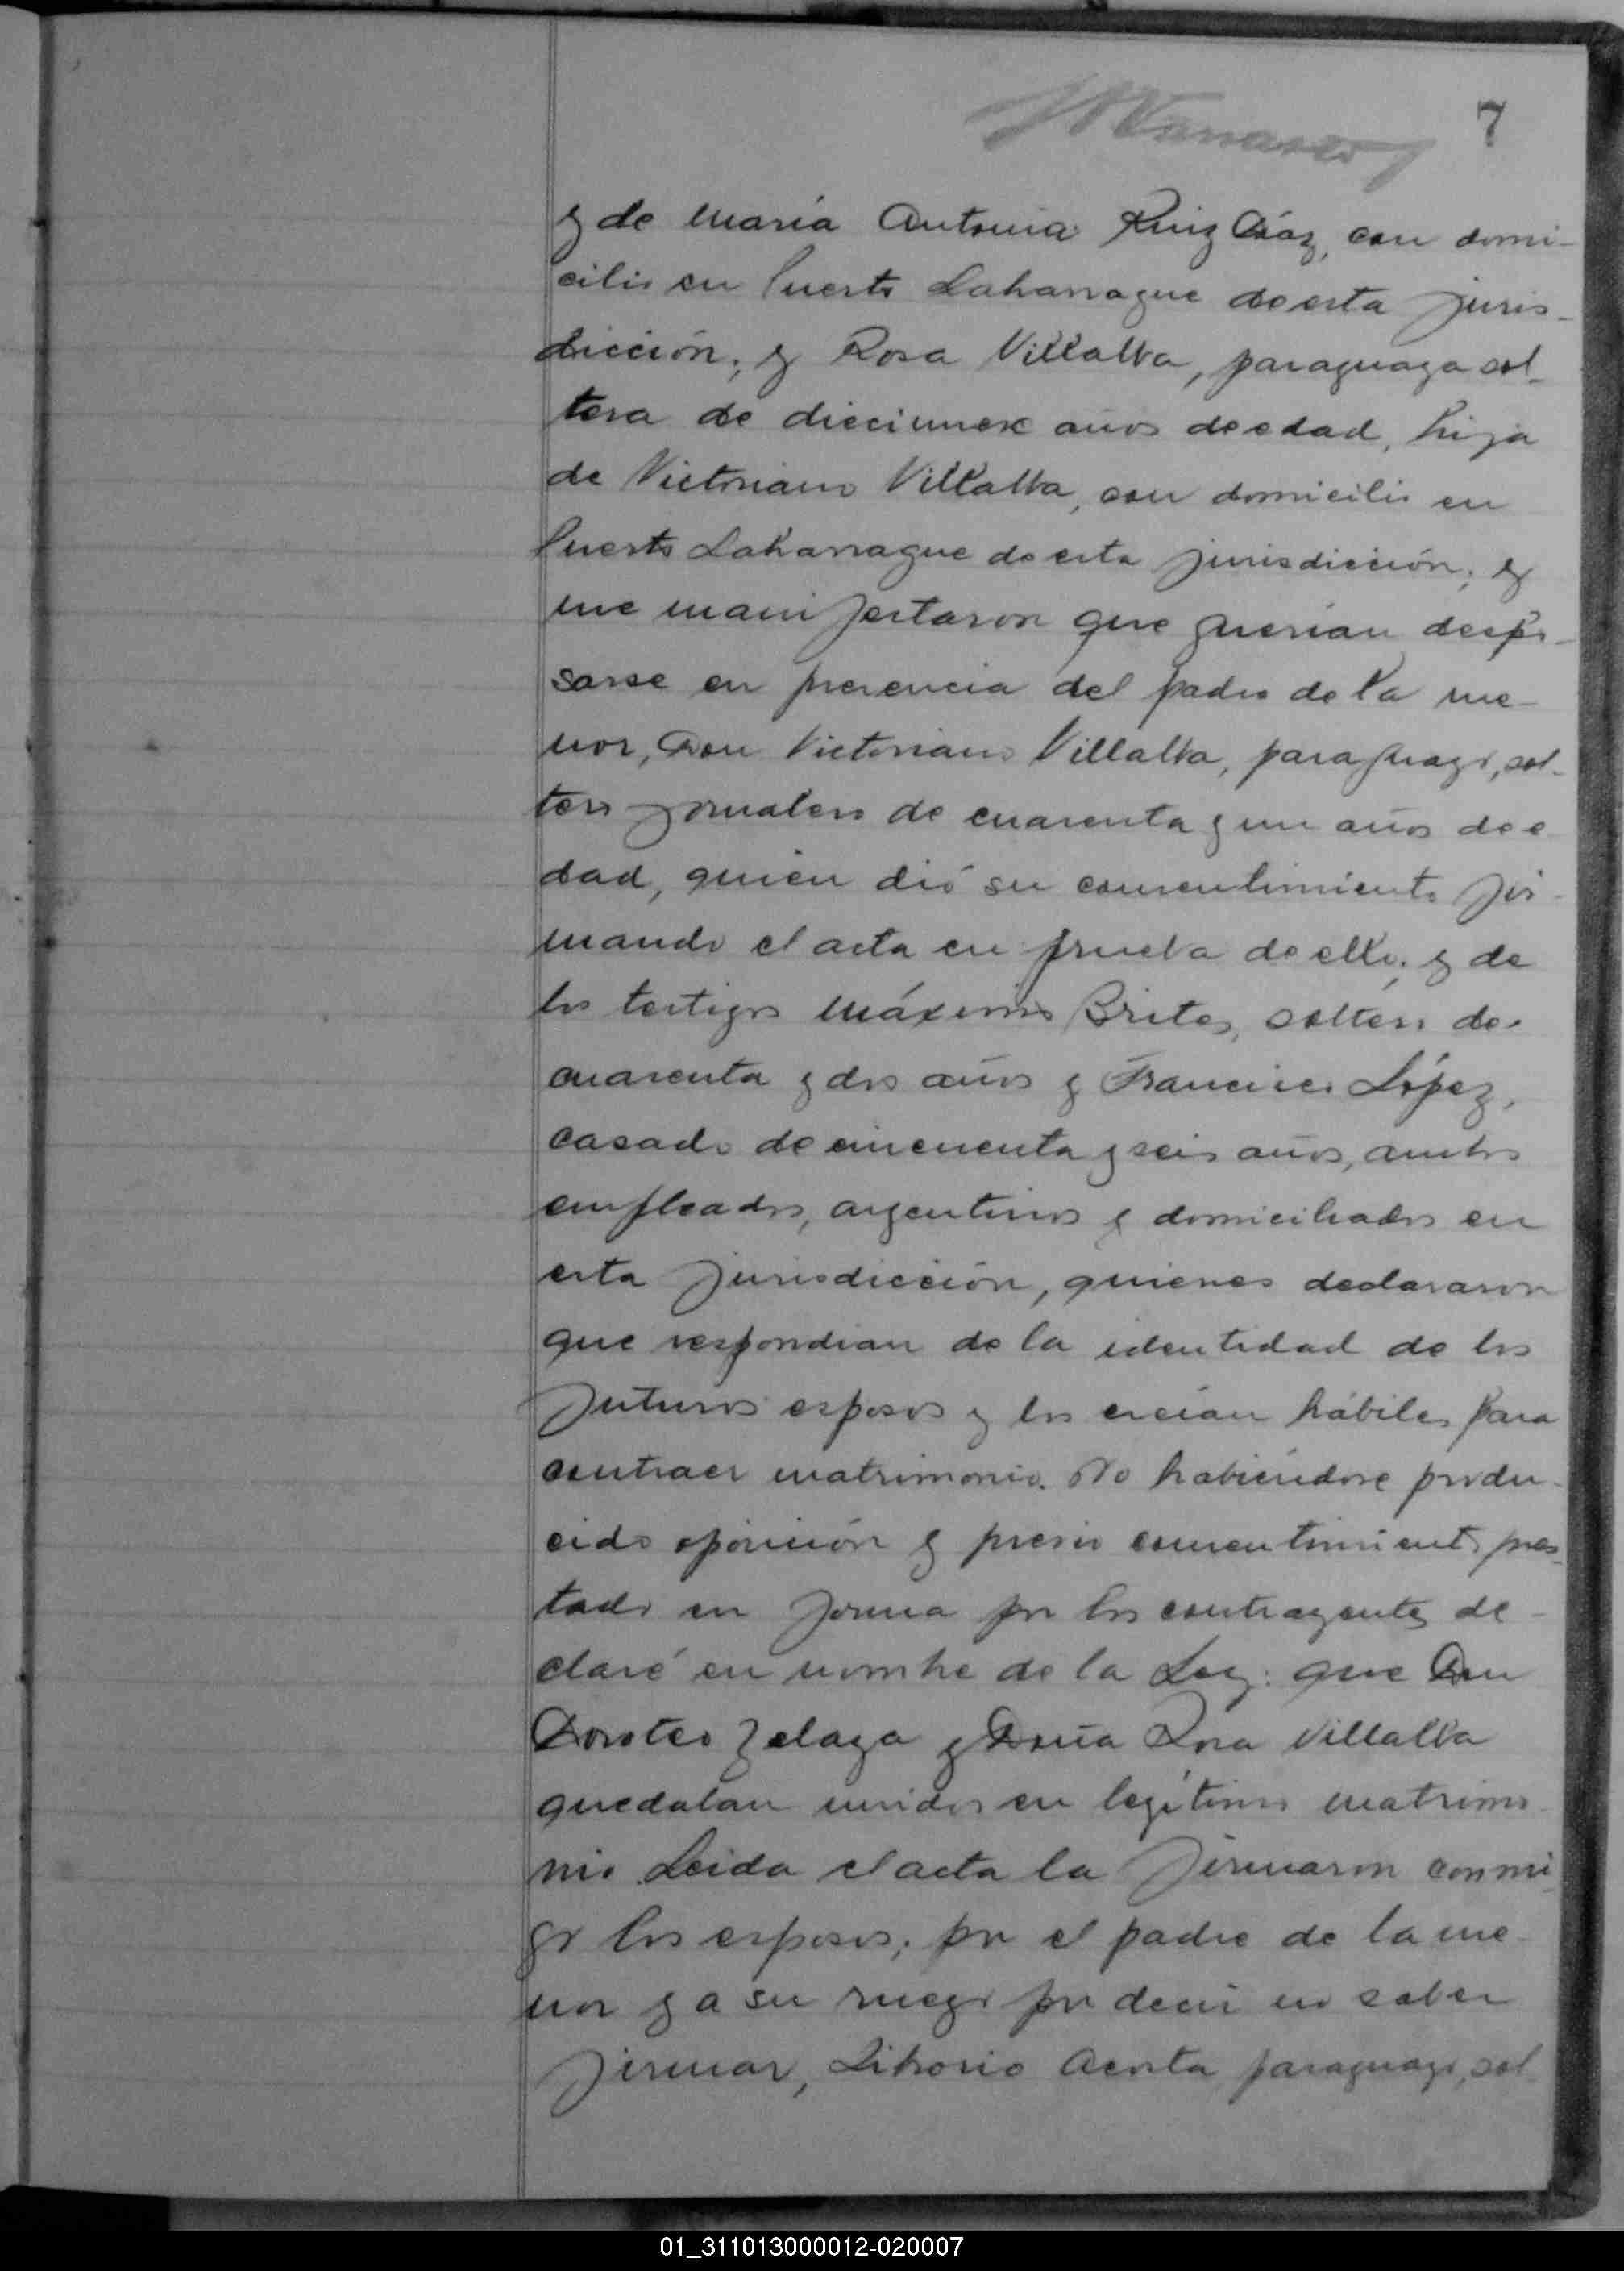 7
y de María Antonia Ruiz Díaz, con domi-
cilio en Puerto Laharrague de esta juris-
dicción; y Rosa Villalba, paraguaya sol-
tera de diecinueve años de edad, hija
de Victoriano Villalba, con domicilio en
Puerto Laharrague de esta jurisdicción; y
me manifestaron que querían despo-
sarse en presencia del padre de la me-
nor, Don Victoriano Villalba, paraguayo, sol-
tero jornalero de cuarenta y un años de e
dad, quien dió su consentimiento fir-
mando el acta en prueba de ello; y de
los testigos Máximo Brites, soltero de
cuarenta y dos años y Francisco López,
casado de cincuenta y seis años, ambos
empleados, argentinos y domiciliados en
esta jurisdicción, quienes declararon
que respondian de la identidad de los
futuros esposos y los creían hábiles para
contraer matrimonio. No habiéndose produ-
cido oposición y previo consentimiento pres-
tado en forma por los contrayentes de-
claré en nombre de la Ley: que Don
Doroteo Zelaya y Doña Rosa Villalba
quedaban unidos en legítimo matrimo-
nio. Leida el acta la firmaron conmi-
go los esposos; por el padre de la me-
nor y a su ruego por decir no saber
firmar, Liborio Acosta paraguayo, sol-
01_311013000012-020007